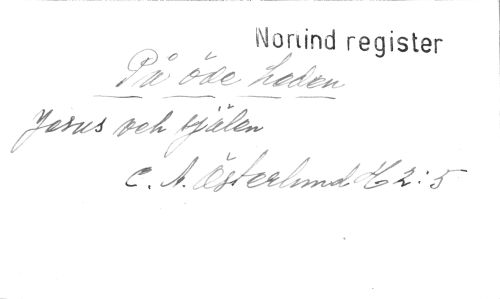 Norlind register
På öde heden
Jesus och själen
C. A. Österlund H 2:5